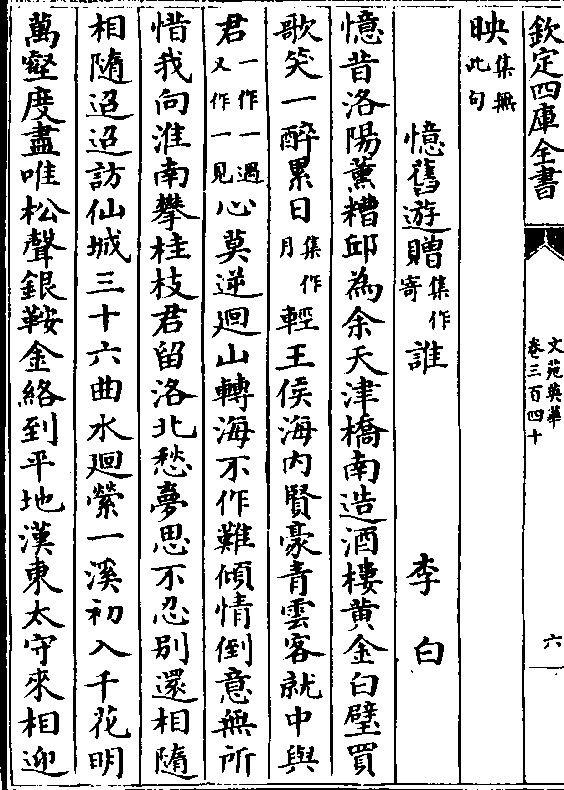 欽定四庫全書
文苑英華
卷三百四十
六
映集無此句
憶舊遊贈集作寄誰 李白
憶昔洛陽薫糟邱為余天津橋南造酒樓黄金白璧買
歌笑一醉累日集作月輕王侯海内賢豪青雲客就中與
君一作一遇又作一見心莫逆迴山轉海不作難傾情倒意無所
惜我向淮南攀桂枝君留洛北愁夢思不忍别還相隨
相隨迢迢訪仙城三十六曲水迴縈一溪初入千花明
萬壑度盡唯松聲銀鞍金絡到平地漢東太守來相迎